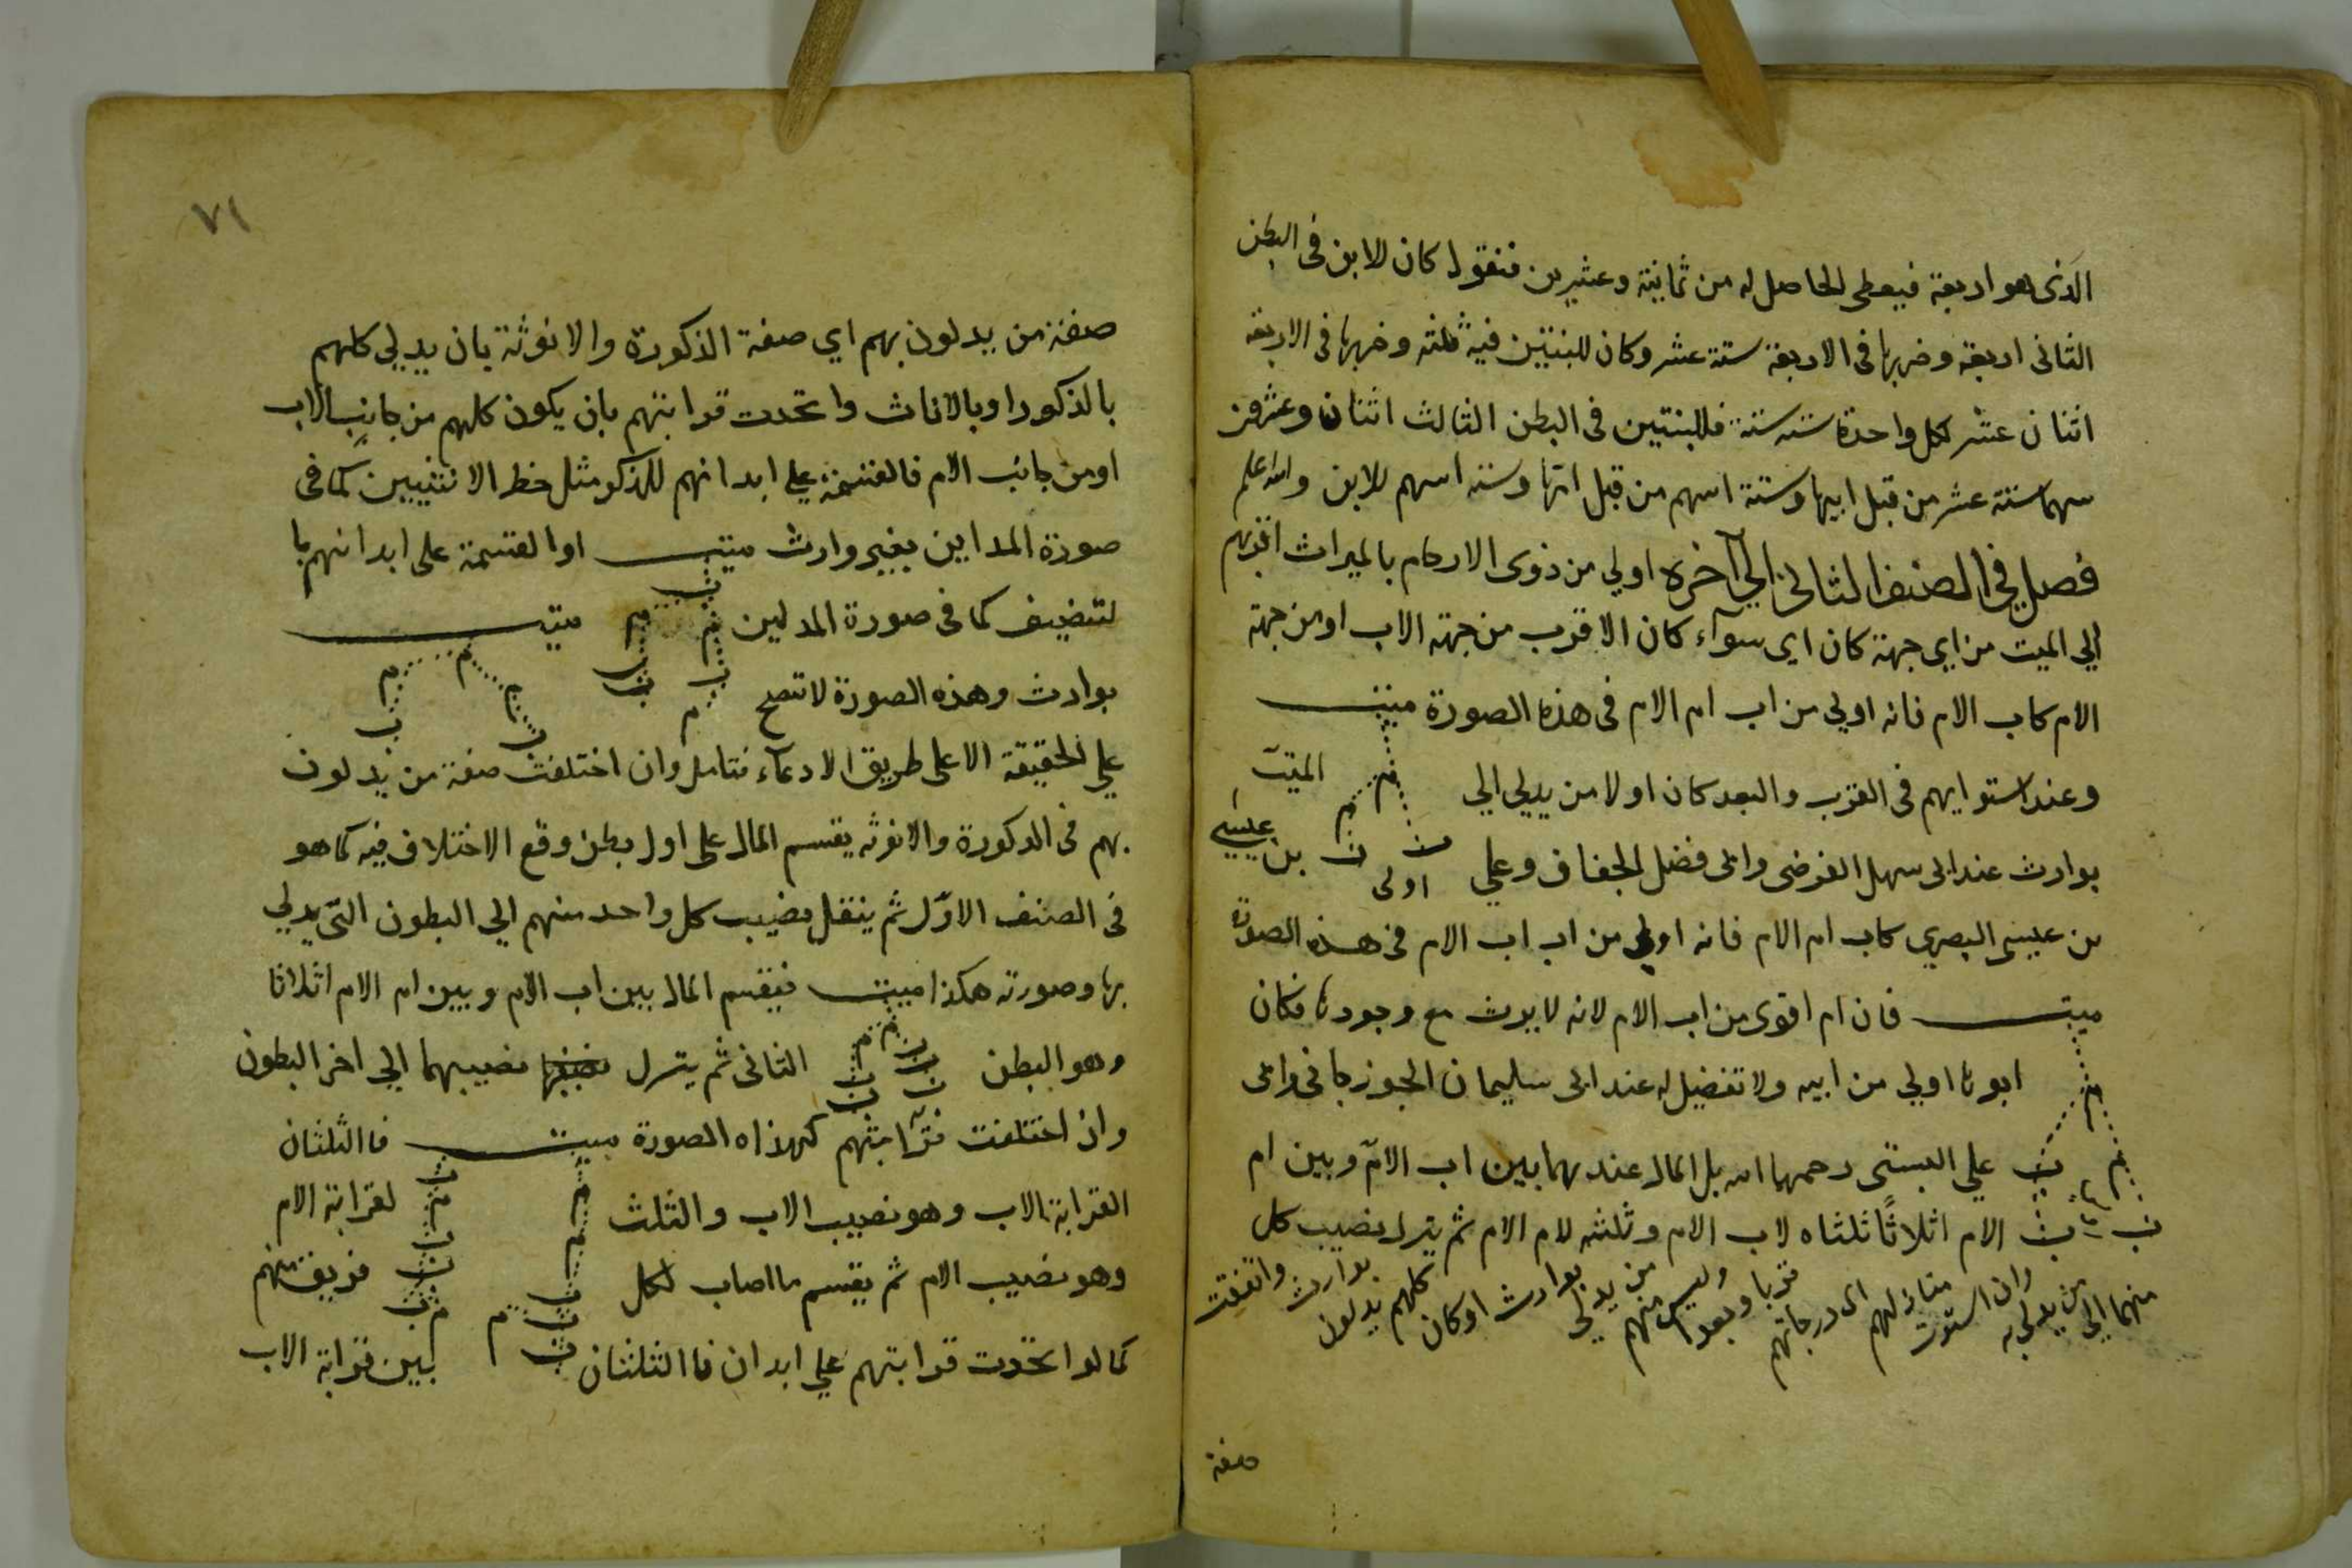 الذى هو اربعة فيعطى الحاصل له من ثمانية وعشرين فنقول كان للابن فى البطن
الثانى اربعة وضربها فى الاربعة ستة عشر وكان للبنتين فيه ثلثة وضربها فى الاربعة
اثنان عشر لكل واحدة ستة ستة فللبنتين فى البطن الثالث اثنان وعشرون
سهما ستة عشر من قبل ابيها وستة اسهم من قبل امها وستة اسهم للابن والله اعلم
فصل في الصنف الثانى الي آخره اولي من ذوى الارحام بالميراث اقربهم
الي الميت من اي جهة كان اى سوآء كان الاقرب من جهة الاب او من جهة
الام كاب الام فانه اولي من اب ام الام فى هذه الصورة ميتــ
وعند استوايهم فى القرب والبعد كان اولا من يدلي الي الميت
بوارث عند ابى سهل الفرضى وابى فضل الخفاف وعلي اولى بن عيسي
بن عيسى البصري كاب ام الام فانه اولي من اب اب الام فى هذه الصورة
ميتــ فان ام اقوى من اب الام لانه لا يرث مع وجودها فكان
ابوها اولي من ابيه ولا تفضيل له عند ابى سليمان الجوزجانى وابى
علي البستى رحمهما الله بل المال عندهما بين اب الامّ وبين ام
الام اثلاثًا ثلثاه لاب الام وثلثه لام الام ثم ينزل نصيب كل
منهما الي من يدلي به وان استوت منازلهم اى درجاتهم قربا وبعدا وليس منهم من يدلي بوارث او كان كلهم يدلون بوارث واتفقت
صفة
٧١
صفة من يدلون بهم اي صفة الذكورة والانوثة بان يدلي كلهم
بالذكور او بالاناث واتحدت قرابتهم بان يكون كلهم من جانب الاب
او من جانب الام فالقسمة علي ابدانهم للذكر مثل حظ الانثيين كما فى
صورة المدلين بغير وارث ميتــ او القسمة على ابدانهم با
لتنصيف كما فى صورة المدلين ميتــ
بوارث وهذه الصورة لا تصح
علي الحقيقة الا على طريق الادعآء فتامل وان اختلفت صفة من يدلون
بهم فى الدكورة والانوثه يقسم المال على اول بطن وقع الاختلاف فيه كما هو
فى الصنف الاوّل ثم ينقل نصيب كل واحد منهم الي البطون التى يدلي
بها وصورته هكذا ميتــ فيقسم المال بين اب الام وبين ام الام اثلاثا
وهو البطن الثانى ثم ينزل نصيبهما الي اخر البطون
وان اختلفت قرابتهم كهذاه الصورة ميتــ فاالثلثان
القرابة الاب وهو نصيب الاب والثلث لقرابة الام
وهو نصيب الام ثم يقسم ما اصاب لكل فريق منهم
كما لو اتحدت قرابتهم علي ابدان فاالثلثان بين قرابة الاب